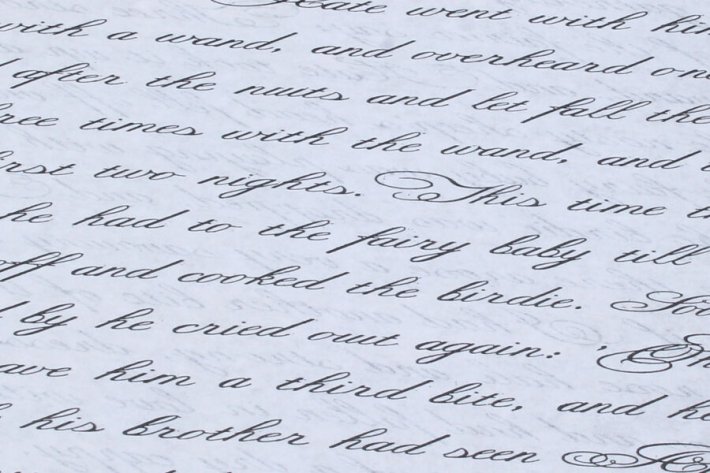 Kate went with him
with a wand, and overheard one
after the nuts and let fall the
three times with the wand, and
first two nights. This time
he had to the fairy baby till
off and cooked the birdie. Soon
by he cried out again: '
him a third bite, and he
his brother had seen